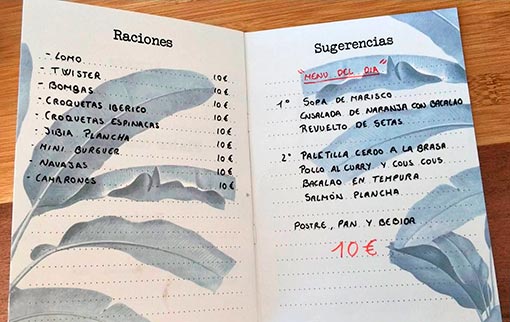 Raciones
- LOMO 10€
- TWISTER 10€
- BOMBAS 10€
- CROQUETAS IBERICO 10€
- CROQUETAS ESPINACAS 10€
- JIBIA PLANCHA 10€
- MINI BURGUER 10€
- NAVAJAS 10€
- CAMARONES 10€
Sugerencias
"MENU DEL DIA"
1º SOPA DE MARISCO
ENSALADA DE NARANJA CON BACALAO
REVUELTO DE SETAS.
2º PALETILLA CERDO A LA BRASA
POLLO AL CURRY Y COUS COUS.
BACALAO EN TEMPURA
SALMÓN PLANCHA.
POSTRE, PAN Y BEBIDA
10€